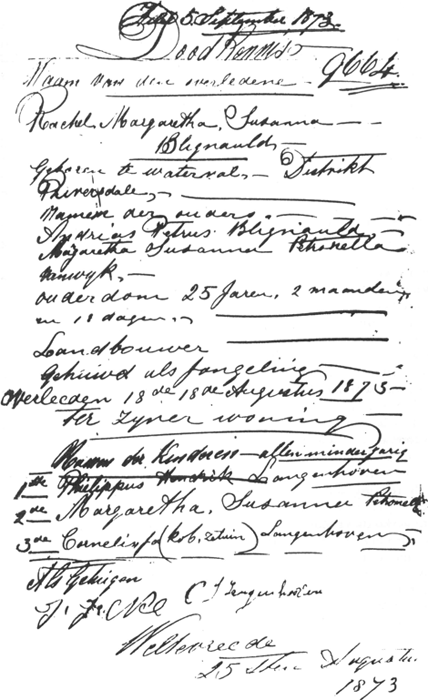 5 September 1873.
Dood Kennis
Naam van den overledene 9664.
Rachel Margaretha Susanna
Blignauld
Geboren te waterval, Distrikt
Riversdale,
Namen der ouders,
Andries Petrus Blignauld,
Margaretha Susanna Petronella
vanwyk,
ouderdom 25 Jaren, 2 maanden
en 18 dagen,
Landbouwer
Gehuwd als
overleeden 18de 18de Augustus 1873
ter zyner woning
Namen der Kinderen allen minderjarig
1ste Philippus Hendrik Langenhoven
2de Margaretha, Susanna Petronella
3de Cornelis Langenhoven
Als Getuigen
C J Langenhoven
Weltevrede
25 Augustus
1873